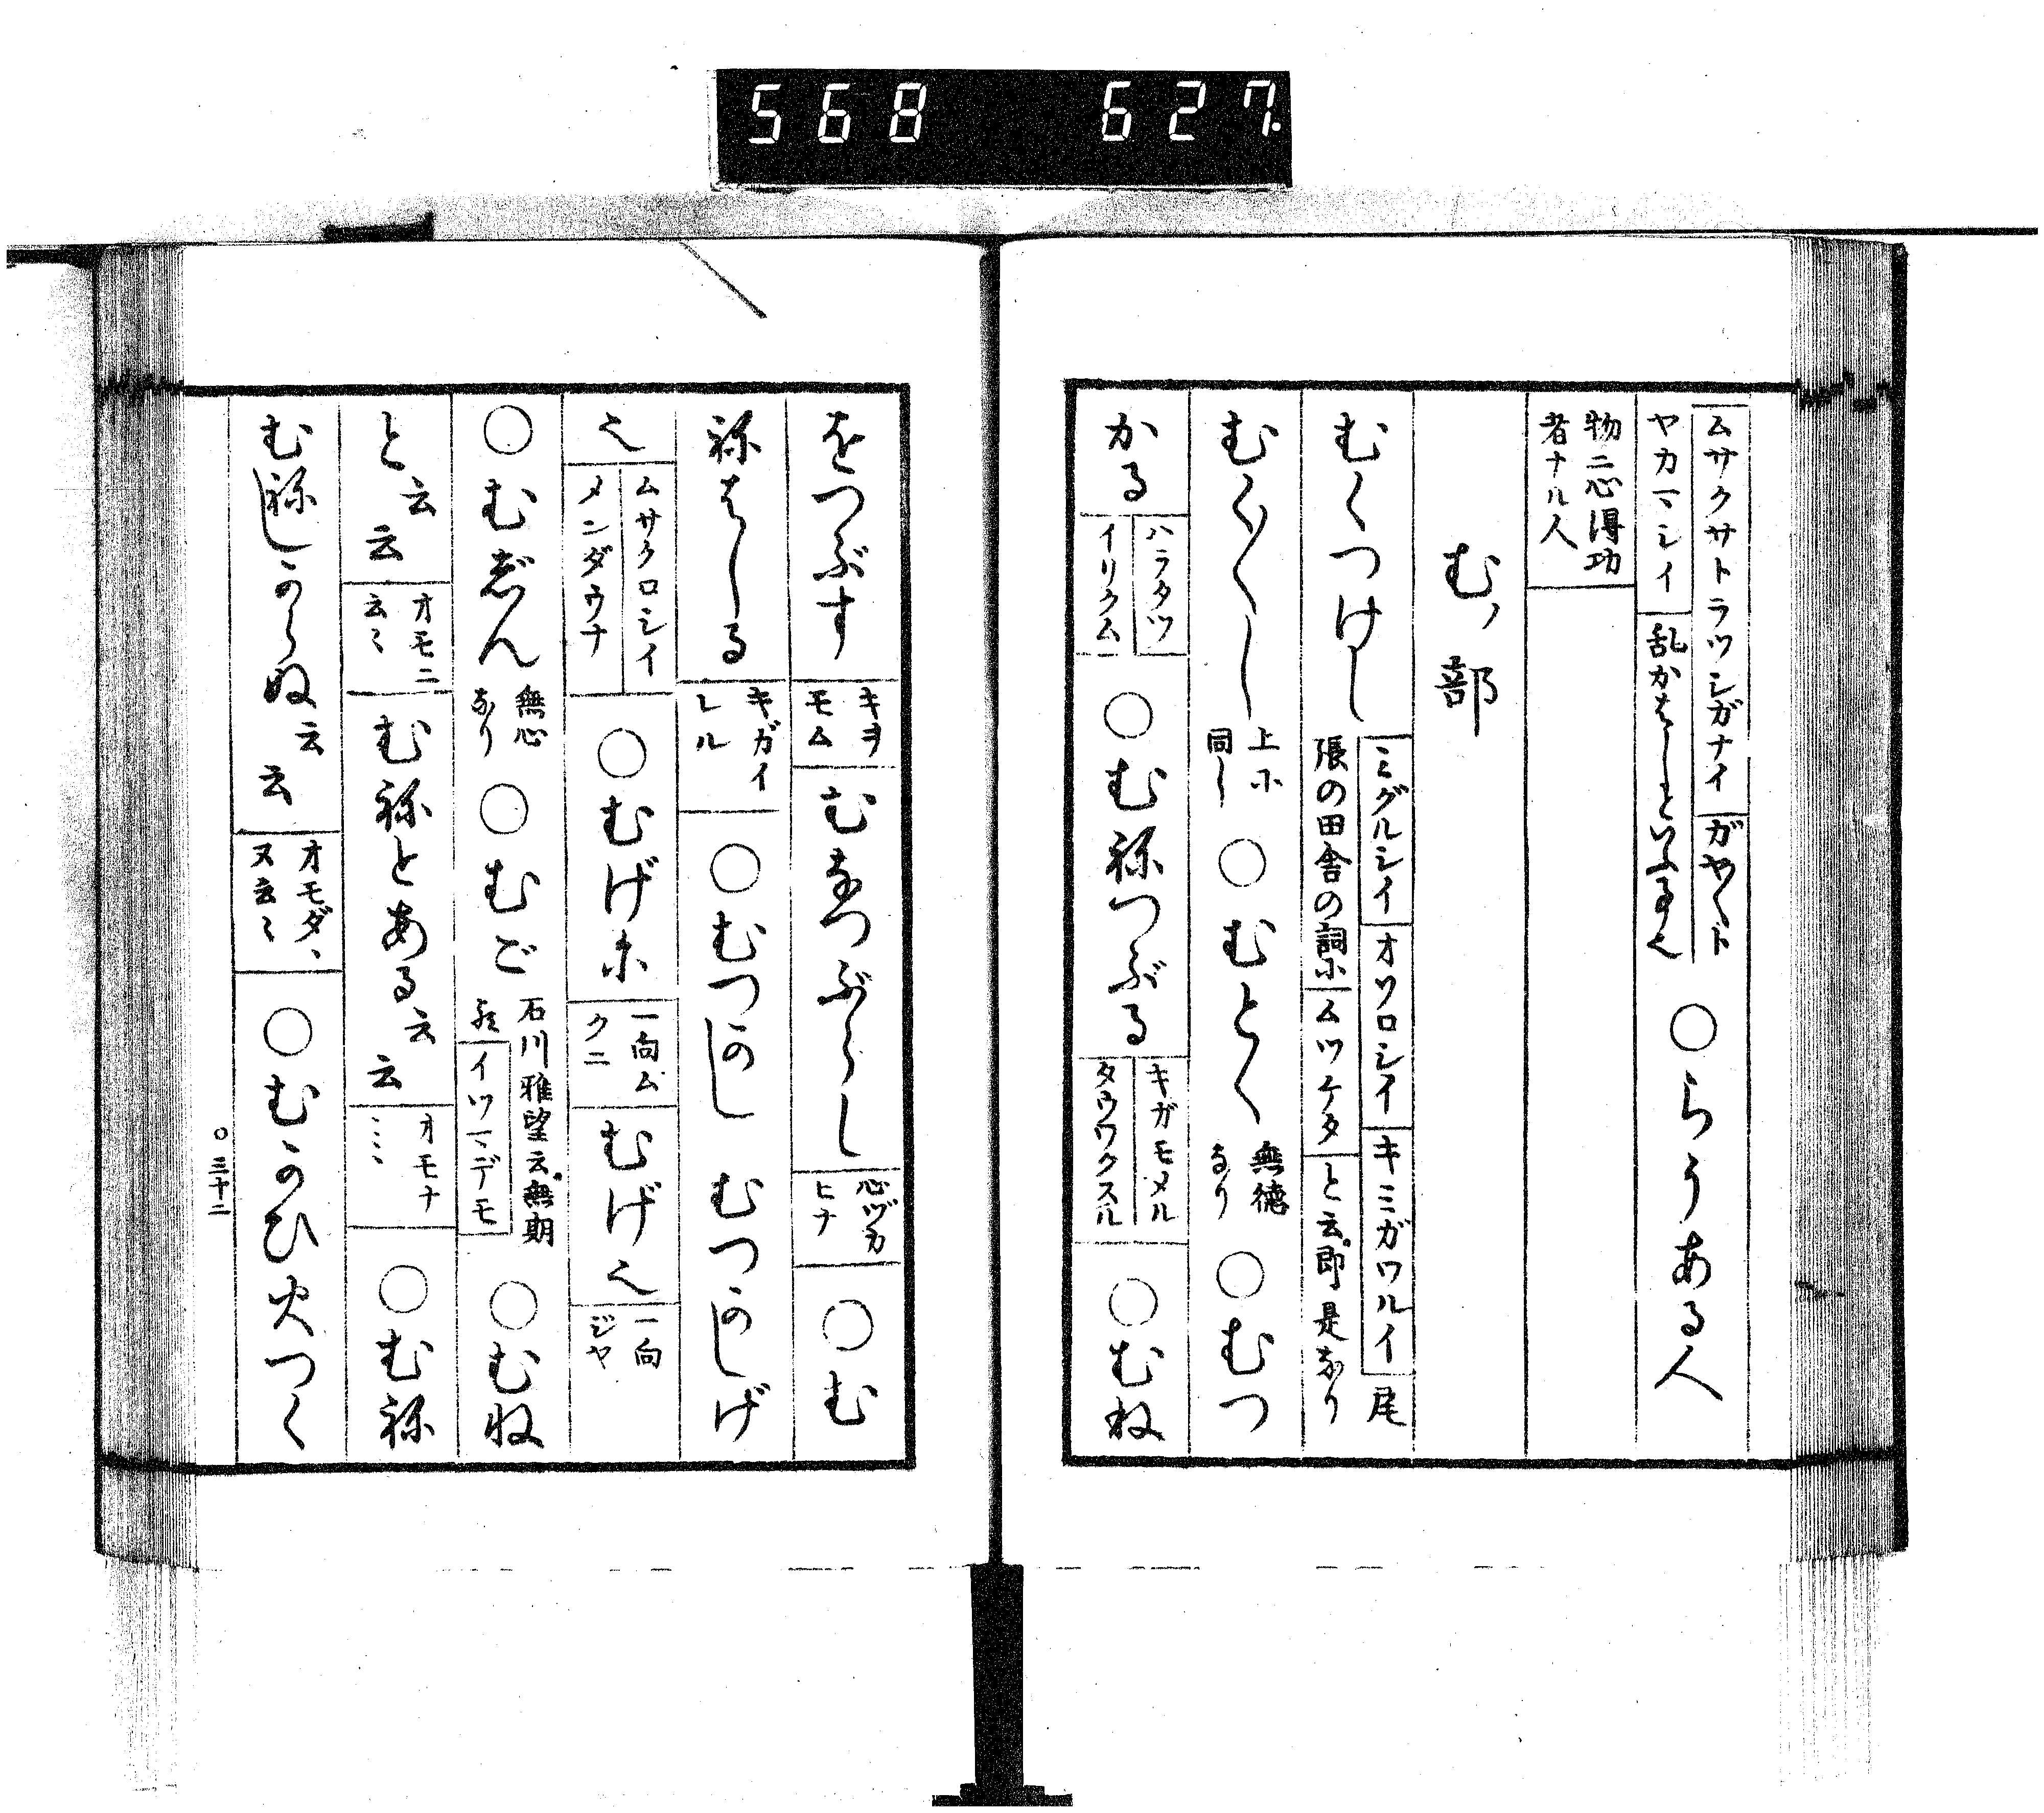 568 627.
ムサクサトラツシガナイ ガヤ〳〵ト
ヤカマシイ 乱がはしといふ事也
○らうある人
物ニ心得功
者ナル人
むノ部
むくつけし
ミグルシイ オソロシイ キミガワルイ 尾
張の田舎の詞に ムツケタ と云即是なり
むく〳〵し
上に
同し
○むとく
無徳
なり
○むつ
かる
ハラタツ
イリクム
○むねつぶる
キガモメル
タウワクスル
○むね
をつぶす
キヲ
モム
むなつぶらし
心ヅカ
ヒナ
○む
ねはしる
キガイ
レル
○むつかし むつかしげ
也
ムサクロシイ
メンダウナ
○むげに
一向ム
クニ
むげ也
一向
ジヤ
○むしん
無心
なり
○むご
石川雅望云無期
イツマデモ
○むね
と云云
オモニ
云〻
むねとある云云
オモナ
〻〻
○むね
むねしからぬ云云
オモダヽ
ヌ云〻
○むかひ火つく
○三十二